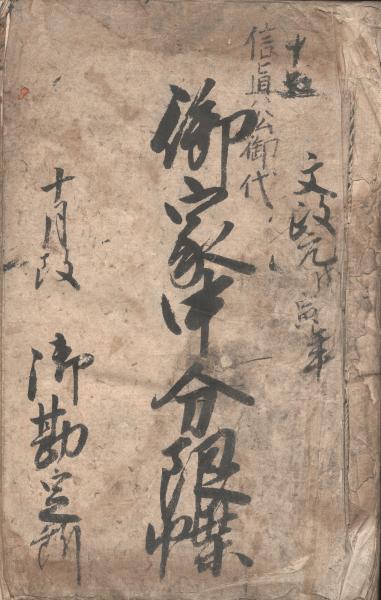 信真公御代
文政元戊寅年
御家中分限帳
十月改
御勘定所